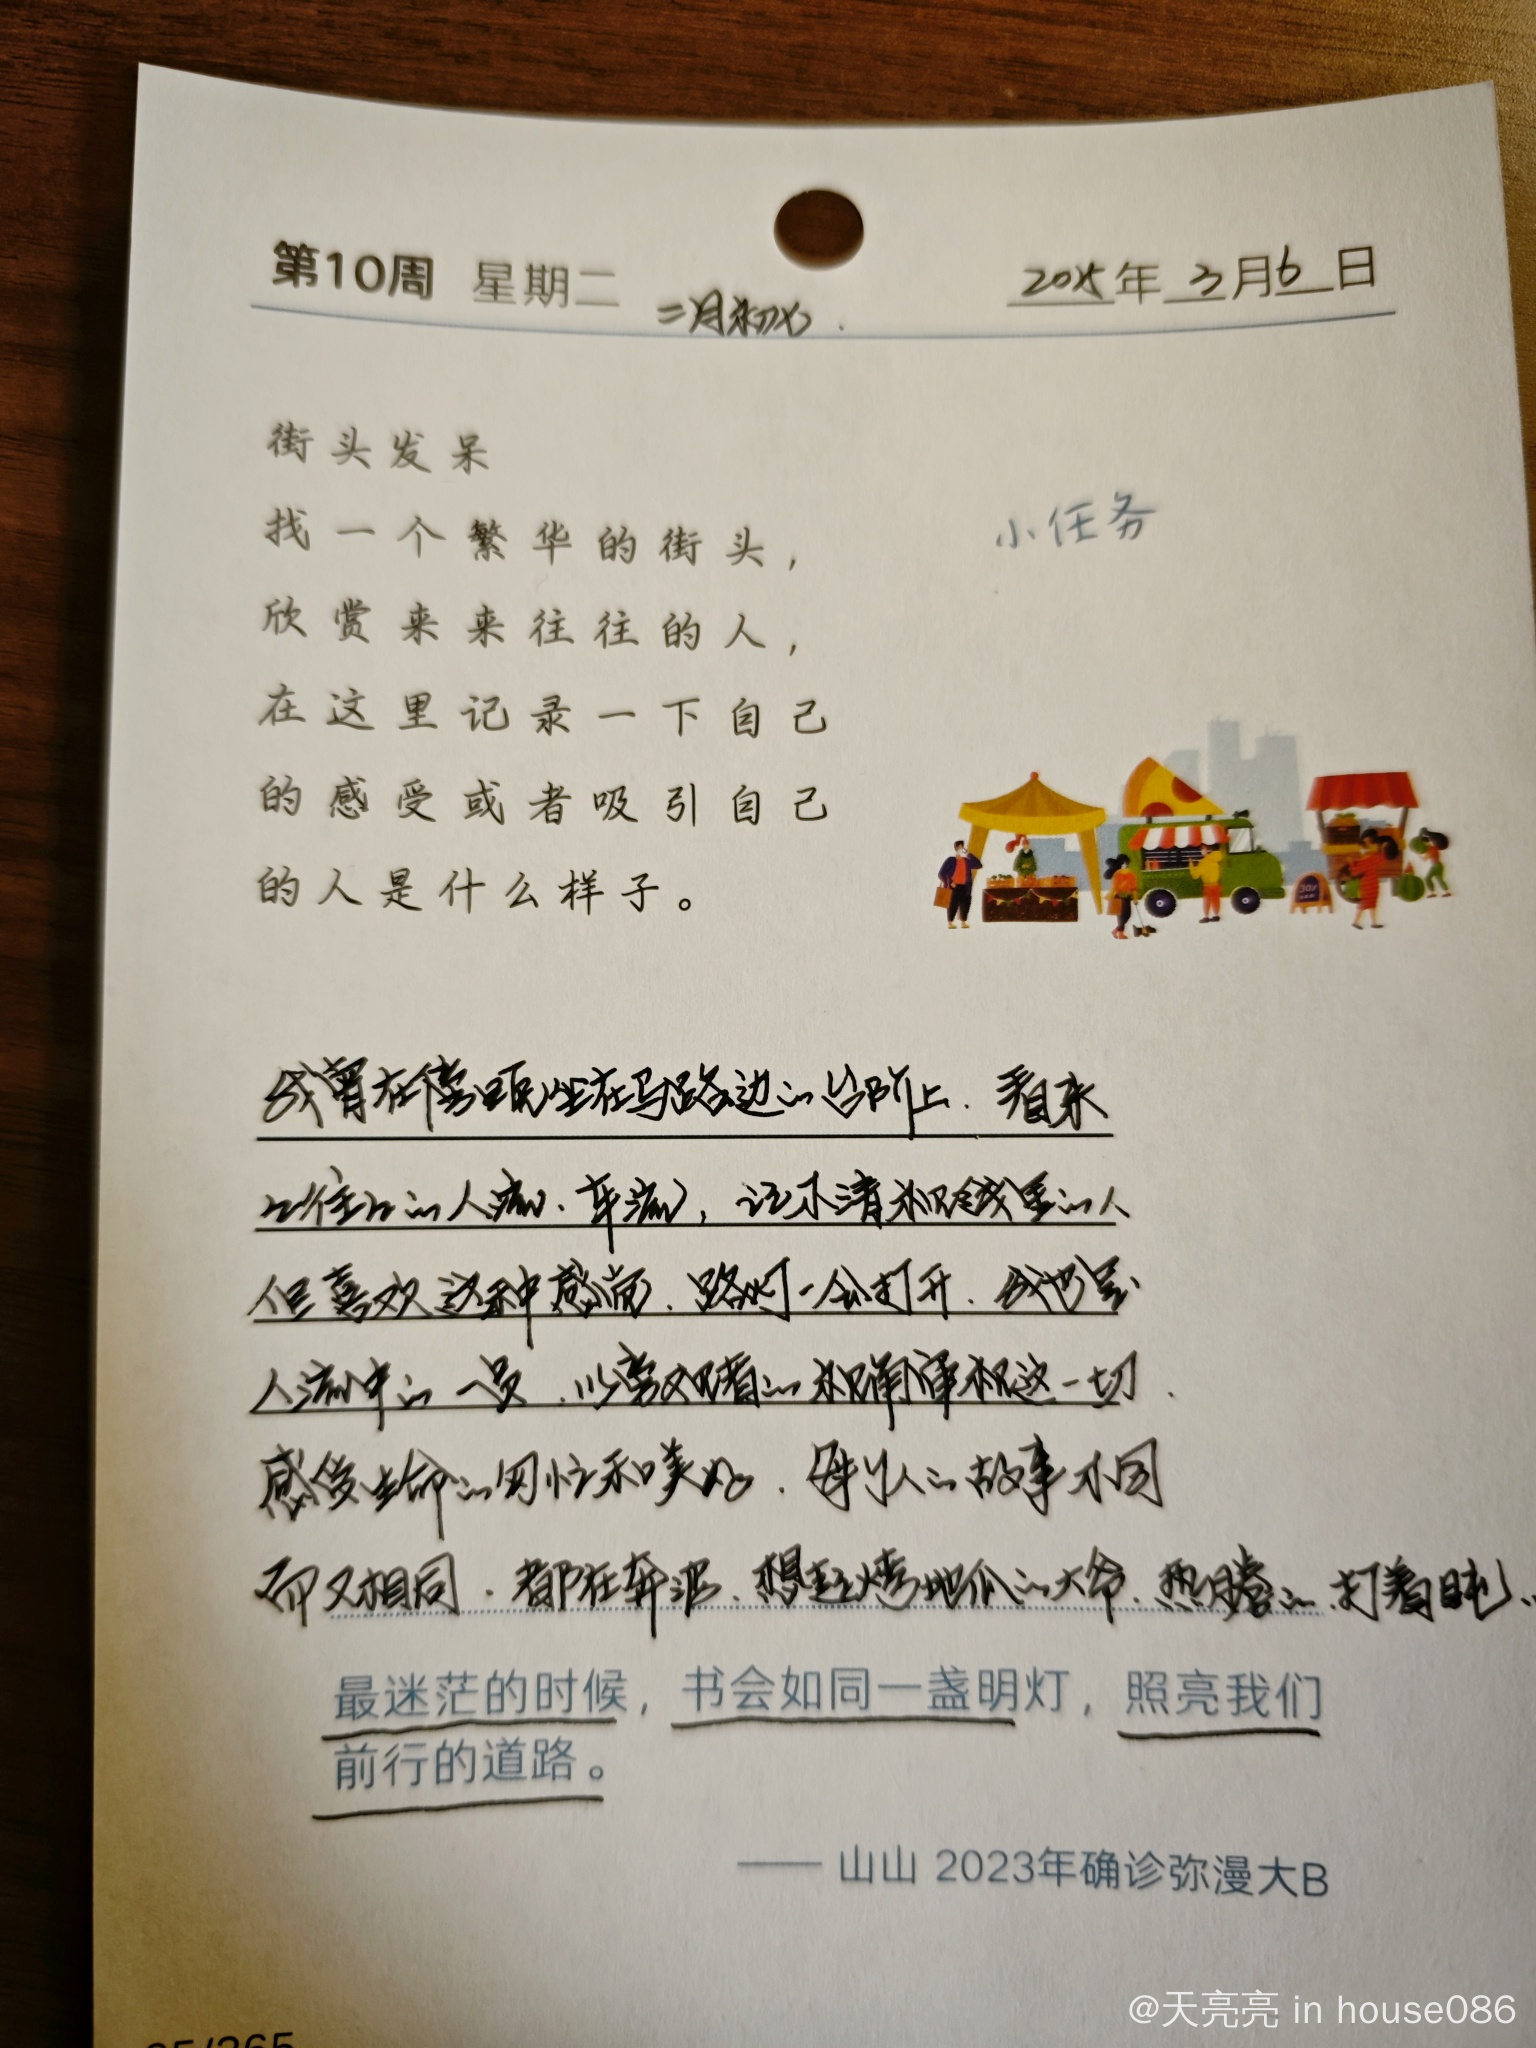 第10周 星期二
二月初七.
2025年 3月6日
街头发呆
找一个繁华的街头，
欣赏来来往往的人，
在这里记录一下自己
的感受或者吸引自己
的人是什么样子。
小任务
我曾在傍晚坐在马路边的台阶上.看来
往的人流、车流,记不清视线里的人
但喜欢这种感觉.路灯一会打开.我也是
人流中的一员.以旁观着的视角审视这一切.
感受生命的匆忙和美好.每个人的故事不同
而又相同.都在奔波.想起烤地瓜的大爷.热腾的.打着盹..
最迷茫的时候，书会如同一盏明灯，照亮我们
前行的道路。
—— 山山 2023年确诊弥漫大B
65/365
@天亮亮 in house086